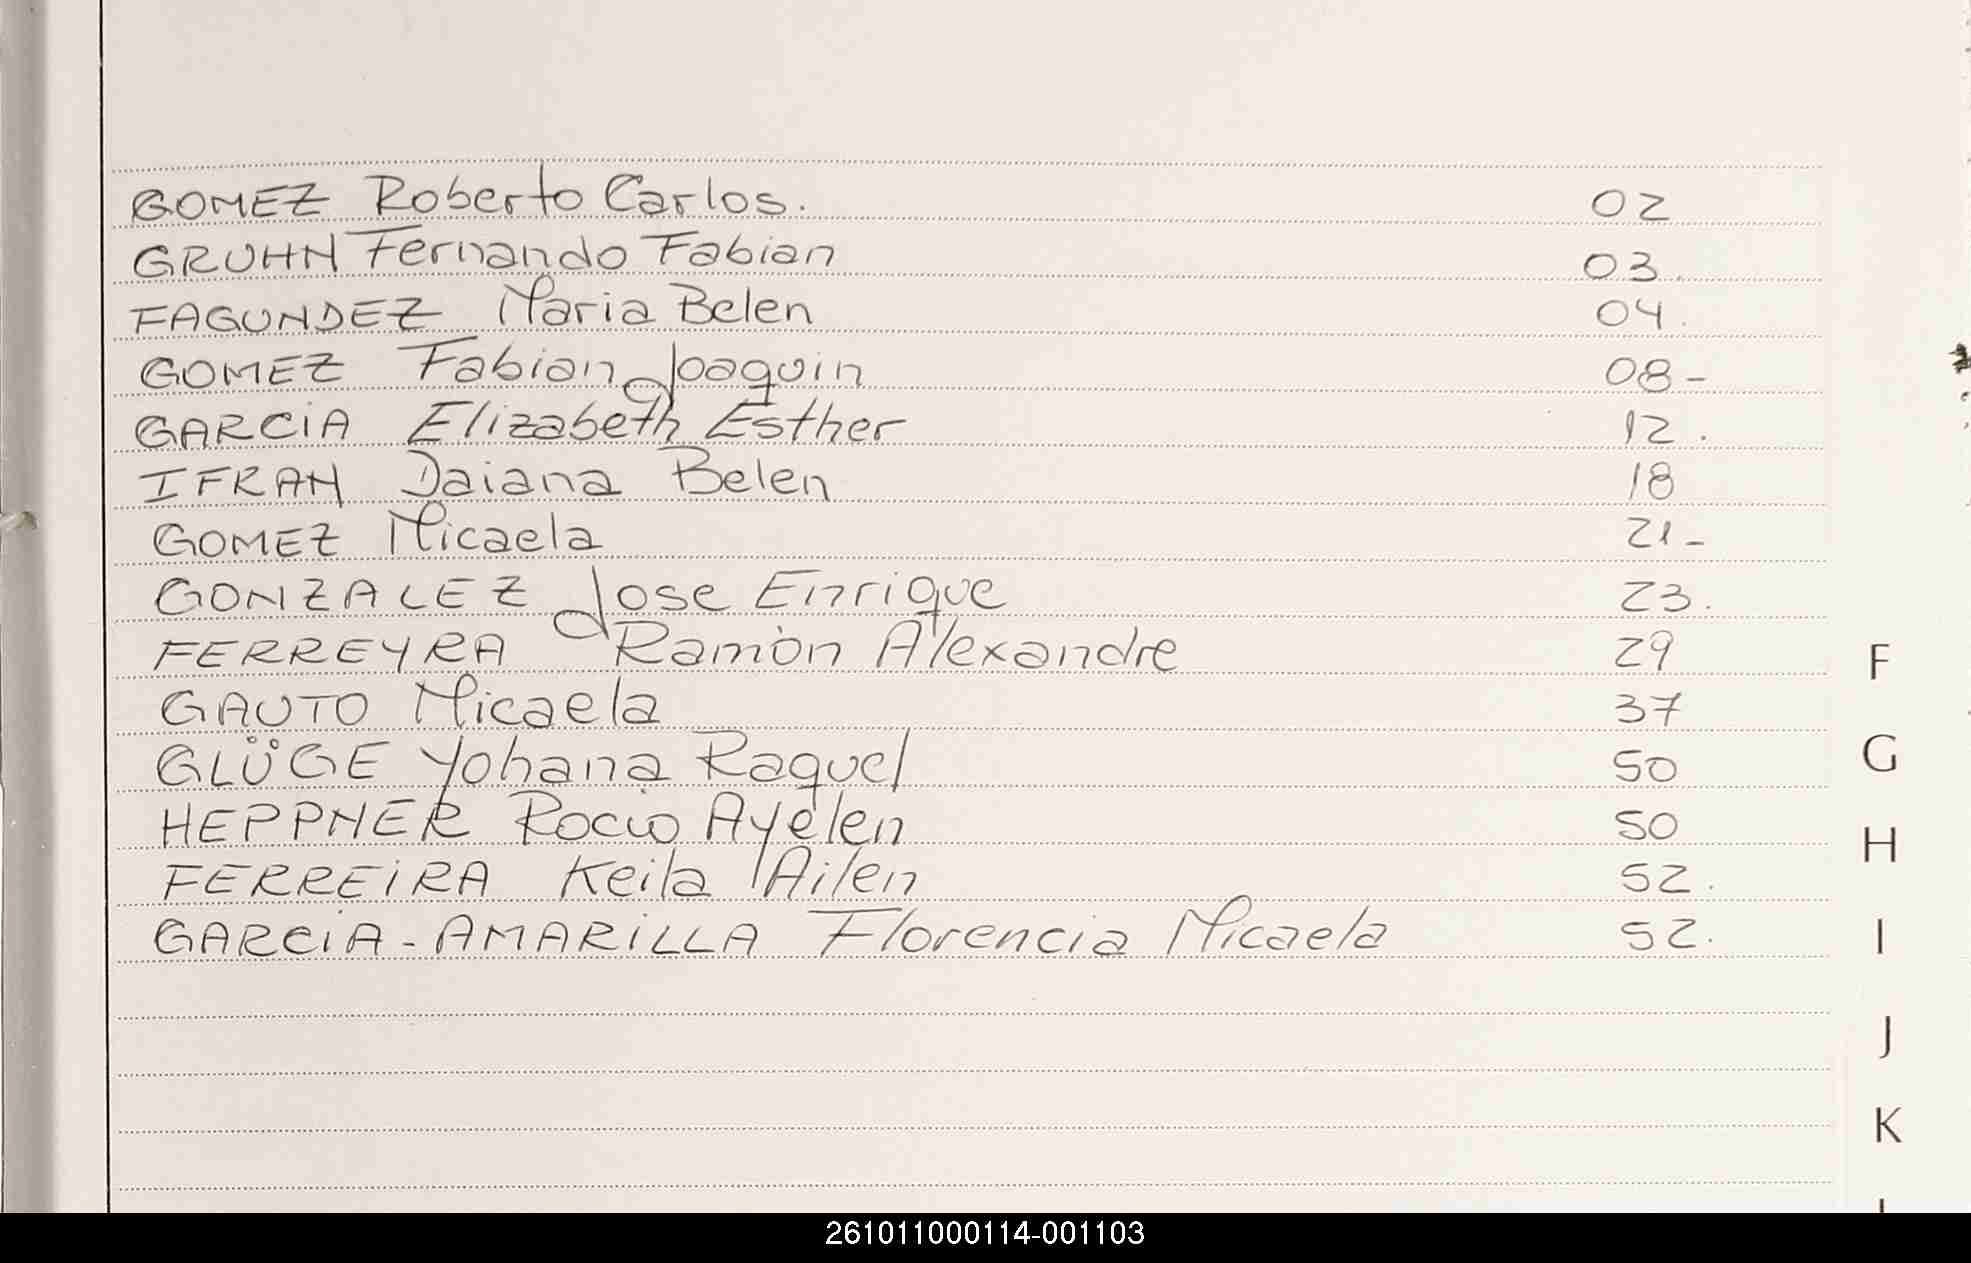 GOMEZ Roberto Carlos. 02
GRUHN Fernando Fabian 03.
FAGUNDEZ Maria Belen 04.
GOMEZ Fabian Joaquin 08-
GARCiA Elizabeth Esther 12.
IFRAN Daiana Belen 18
GOMEZ Micaela 21-
GONZALEZ Jose Enrique 23.
FERREYRA Ramón Alexandre 29
GAUTO Micaela 37
GLÜGE Yohana Raquel 50
HEPPNER Rocio Ayelen 50
FERREiRA Keila Ailen 52.
GARCiA-AMARiLLA Florencia Micaela 52.
F
G
H
I
J
K
261011000114-001103